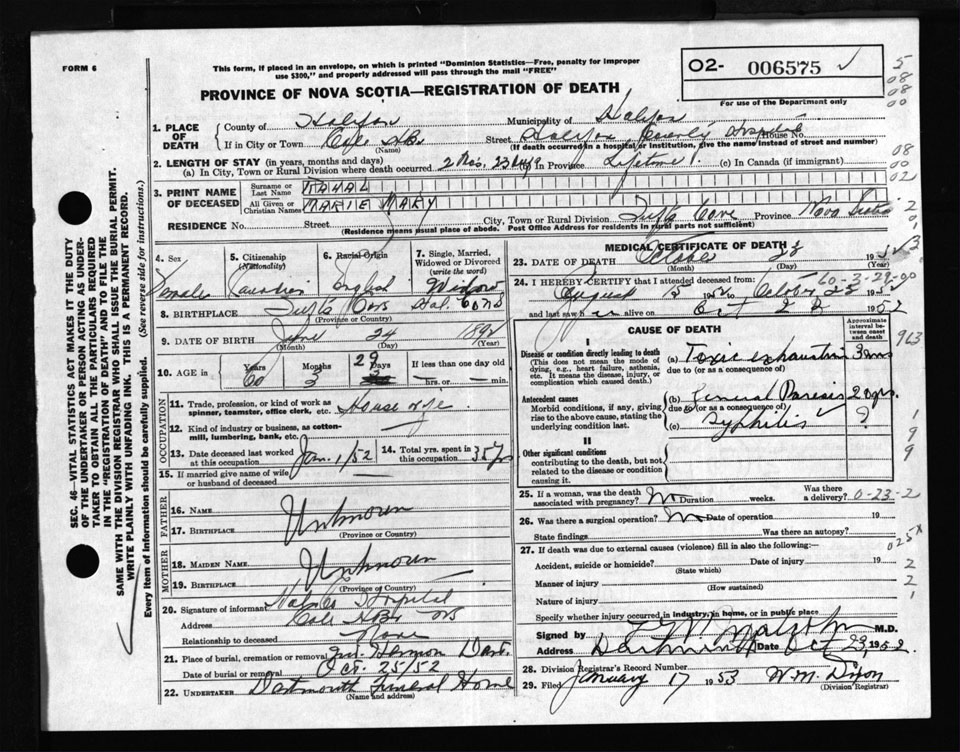 FORM 6
This form, if placed in an envelope, on which is printed "Dominion Statistics—Free, penalty for improper
use $300," and properly addressed will pass through the mail "FREE"
O2- 006575 ✓
For use of the Department only
PROVINCE OF NOVA SCOTIA—REGISTRATION OF DEATH
1. PLACE OF DEATH
County of Halifax Municipality of Halifax
If in City or Town Cole Hbr. (Name) Street Halifax County Hospital House No.
(If death occurred in a hospital or institution, give the name instead of street and number)
2. LENGTH OF STAY (in years, months and days)
(a) In City, Town or Rural Division where death occurred 2 Mos. 23 days (b) In Province Lifetime (c) In Canada (if immigrant)
3. PRINT NAME OF DECEASED
Surname or Last Name RAHAL
All Given or Christian Names MARIE MARY
RESIDENCE No. Street City, Town or Rural Division Tufts Cove Province Nova Scotia
(Residence means usual place of abode. Post Office Address for residents in rural parts not sufficient)
4. Sex Female
5. Citizenship (Nationality) Canadian
6. Racial Origin English
7. Single, Married, Widowed or Divorced (write the word) Widow
8. BIRTHPLACE Tufts Cove Hal. Co NS
(Province or Country)
9. DATE OF BIRTH June 24 1892
(Month) (Day) (Year)
10. AGE in Years 60 Months 3 29 If less than one day old
hrs. or min.
OCCUPATION
11. Trade, profession, or kind of work as spinner, teamster, office clerk, etc. House wife
12. Kind of industry or business, as cotton-mill, lumbering, bank, etc.
13. Date deceased last worked at this occupation Jan. 1/52
14. Total yrs. spent in this occupation 35 yrs
15. If married give name of wife or husband of deceased
FATHER
16. Name Unknown
17. BIRTHPLACE
(Province or Country)
MOTHER
18. MAIDEN NAME Unknown
19. BIRTHPLACE
(Province or Country)
20. Signature of informant Halifax Hospital
Address Cole Hbr NS
Relationship to deceased None
21. Place of burial, cremation or removal Mt. Hermon Dart.
Date of burial or removal Oct. 25/52
22. UNDERTAKER Dartmouth Funeral Home
(Name and address)
MEDICAL CERTIFICATE OF DEATH
23. DATE OF DEATH October 23 1952
(Month) (Day) (Year)
24. I HEREBY CERTIFY that I attended deceased from:
August 15 1952 to October 23 1952
and last saw her alive on Oct 23 1952
CAUSE OF DEATH
Approximate interval between onset and death
I
Disease or condition directly leading to death
(This does not mean the mode of dying, e.g., heart failure, asthenia, etc. It means the disease, injury, or complication which caused death.)
(a) Toxic exhaustion 3 ms
due to (or as a consequence of)
Antecedent causes
Morbid conditions, if any, giving rise to the above cause, stating the underlying condition last.
(b) General Paresis 2 yrs.
due to (or as a consequence of)
(c) Syphilis ✓ ?
II
Other significant conditions
contributing to the death, but not related to the disease or condition causing it.
25. If a woman, was the death associated with pregnancy? No Duration weeks. Was there a delivery?
26. Was there a surgical operation? No Date of operation 19
State findings Was there an autopsy?
27. If death was due to external causes (violence) fill in also the following:—
Accident, suicide or homicide? Date of injury 19
(State which)
Manner of injury
(How sustained)
Nature of injury
Specify whether injury occurred in industry, in home, or in public place
Signed by Malcolm M.D.
Address Dartmouth Date Oct 23, 1952
28. Division Registrar's Record Number
29. Filed January 17 1953 W.M. Dixon
(Division Registrar)
SEC. 46—VITAL STATISTICS ACT MAKES IT THE DUTY
OF THE UNDERTAKER OR PERSON ACTING AS UNDER-
TAKER TO OBTAIN ALL THE PARTICULARS REQUIRED
IN THE "REGISTRATION OF DEATH" AND TO FILE THE
SAME WITH THE DIVISION REGISTRAR WHO SHALL ISSUE THE BURIAL PERMIT.
WRITE PLAINLY WITH UNFADING INK. THIS IS A PERMANENT RECORD.
Every item of information should be carefully supplied. (See reverse side for instructions.)
5
08
08
00
08
00
02
2
0
1
3
60-3-29-00
963
1
9
9
0-23-2
025x
2
2
1